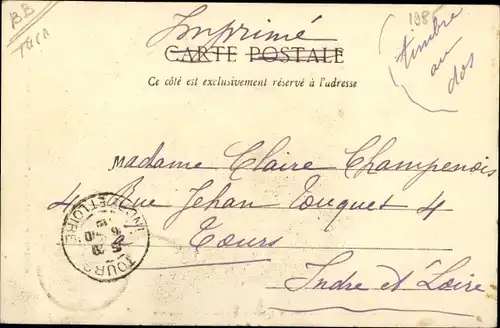 BB
1985
Imprimé
CARTE POSTALE
timbre
au
dos
Ce côté est exclusivement réservé à l'adresse
Madame Claire Champenois
4 Rue Jehan Fouquet 4
à
Tours
Indre et Loire
TOURS
INDRE-ET-LOIRE